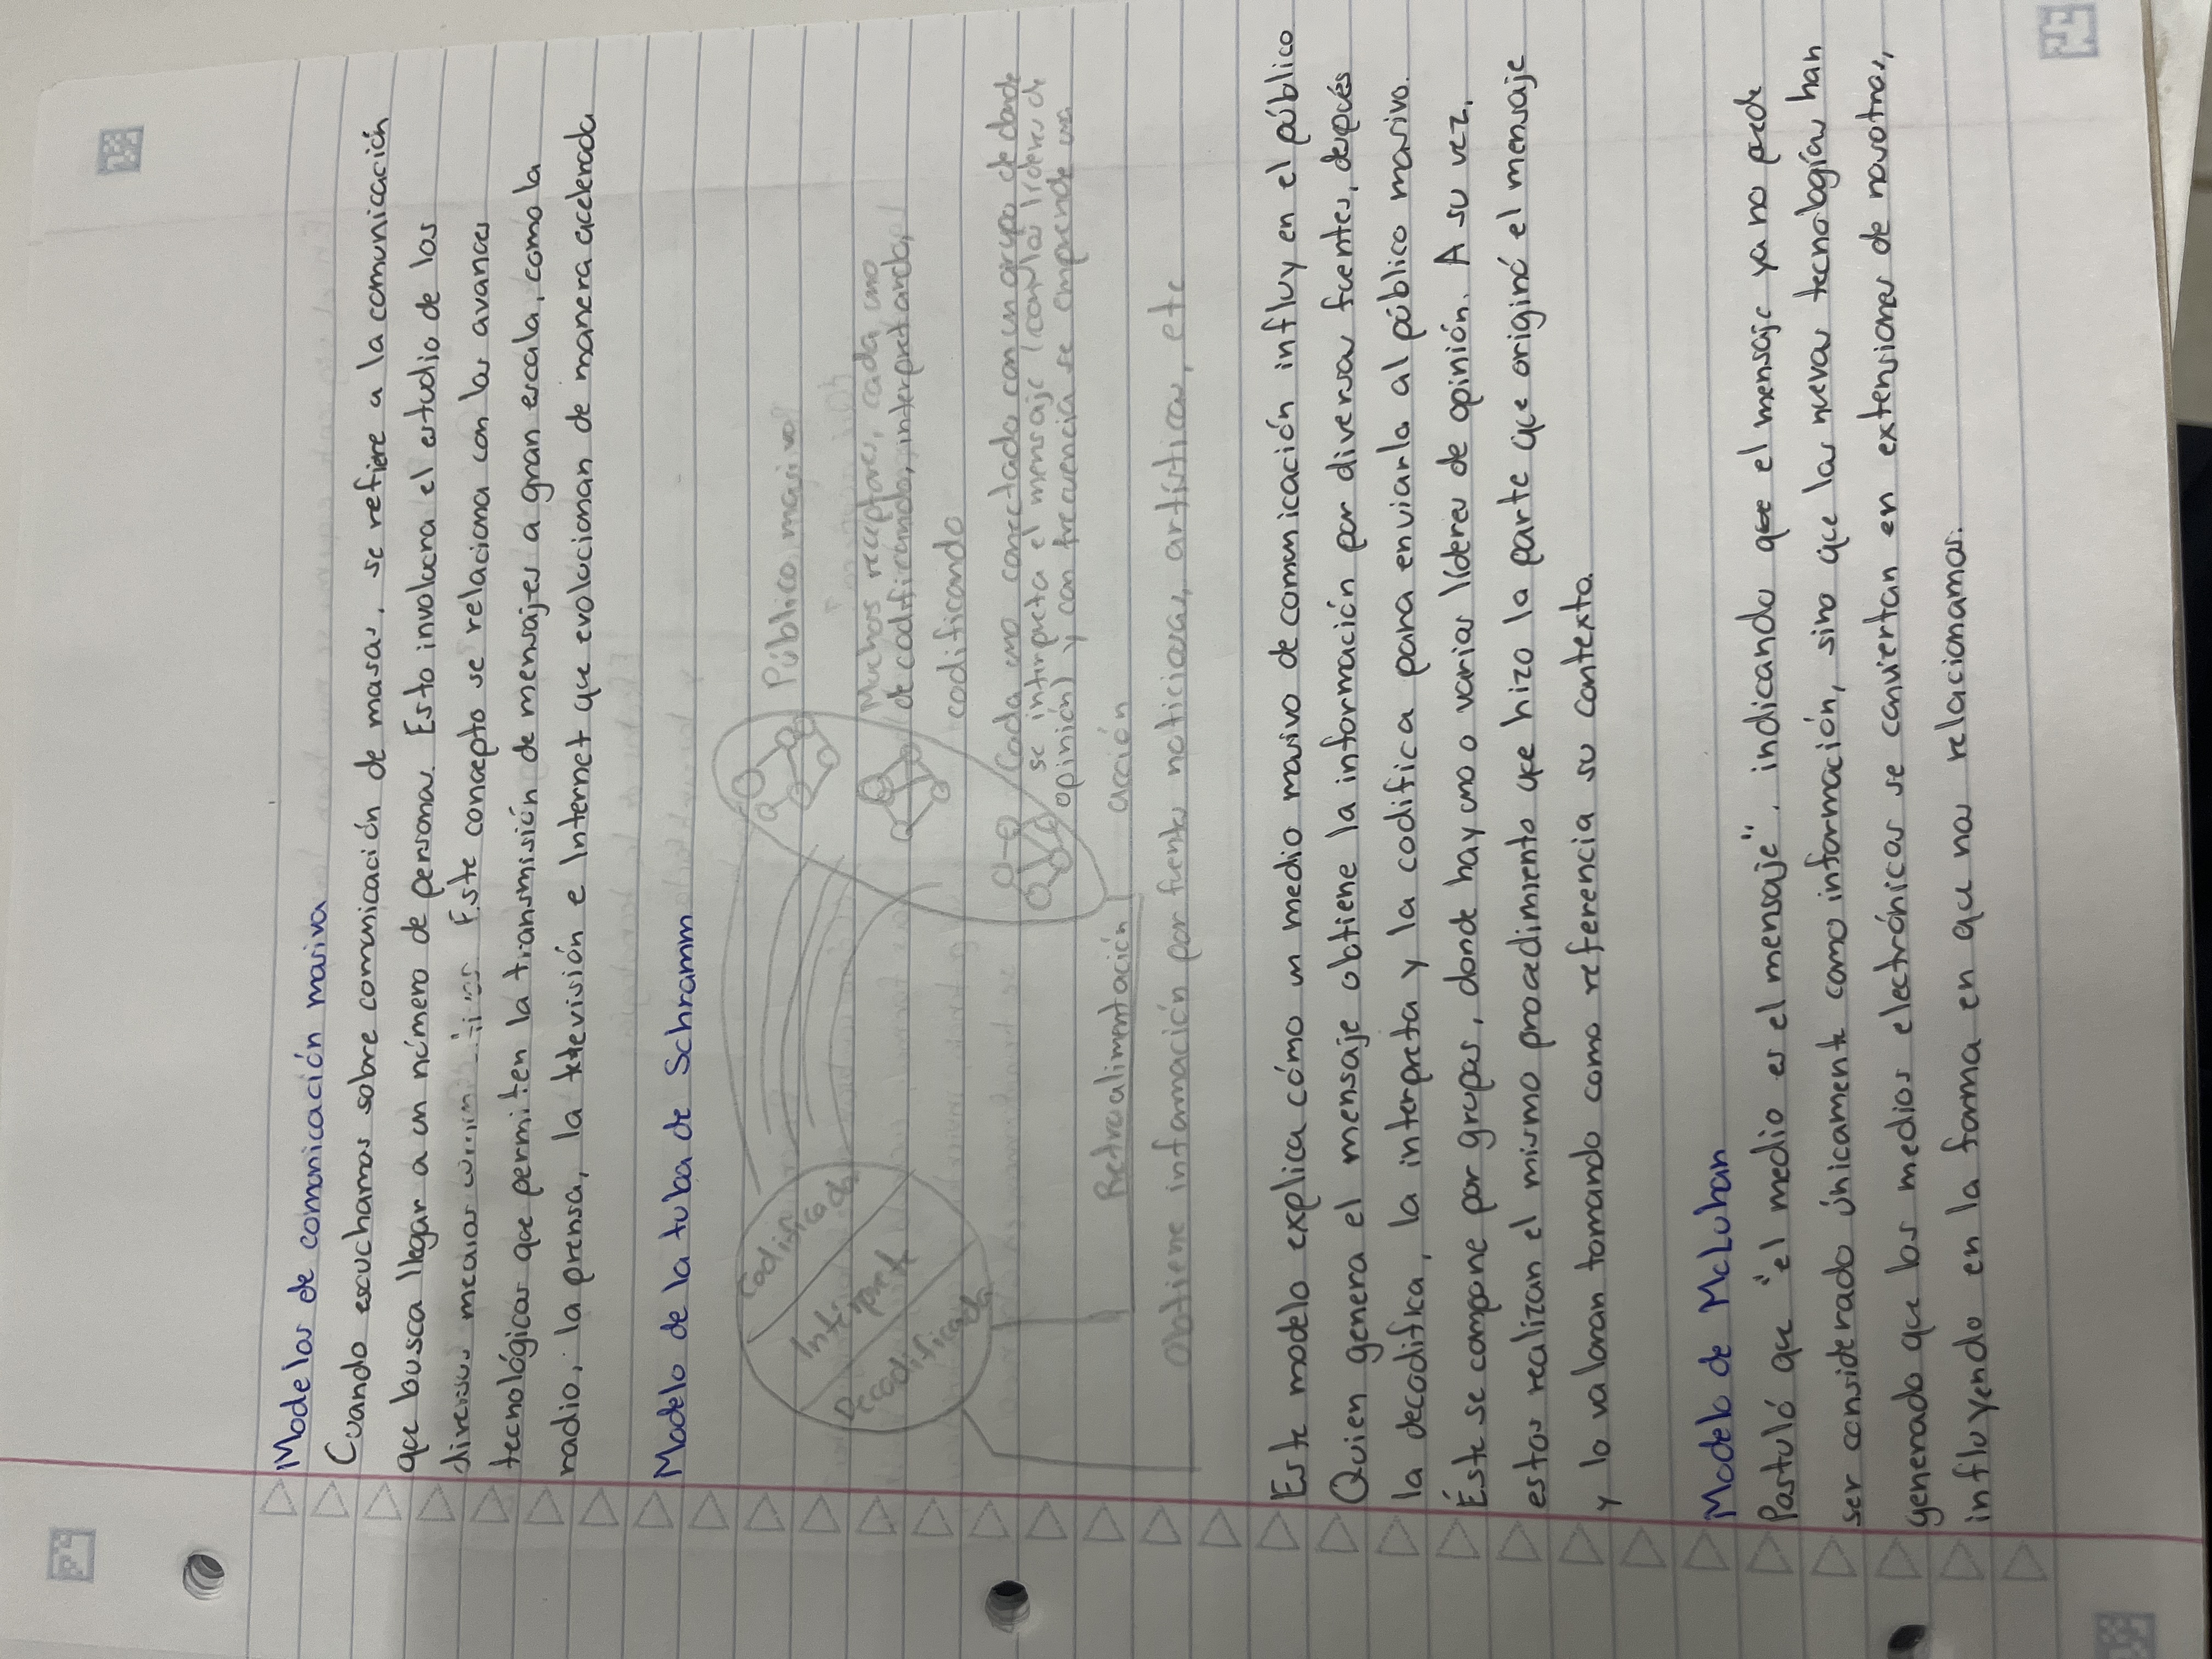 Modelos de comunicación masiva
Cuando escuchamos sobre comunicación de masas, se refiere a la comunicación
que busca llegar a un número de personas. Esto involucra el estudio de los
diversos medios Este concepto se relaciona con los avances
tecnológicos que permiten la transmisión de mensajes a gran escala, como la
radio, la prensa, la televisión e Internet que evolucionan de manera acelerada
Modelo de la tuba de Schramm
Codificador
Interpret
Decodificador
Público masivo
Muchos receptores, cada uno
decodificando, interpretando,
codificando
Cada uno conectado con un grupo de donde
se interpreta el mensaje (con los líderes de
opinión) y con frecuencia se emprende una
acción
Retroalimentación
Obtiene información por fuentes noticiosas, artísticas, etc
Este modelo explica cómo un medio masivo de comunicación influy en el público
Quien genera el mensaje obtiene la información por diversas fuentes, después
la decodifica, la interpreta y la codifica para enviarla al público masivo.
Éste se compone por grupos, donde hay uno o varios líderes de opinión. A su vez,
estos realizan el mismo procedimiento que hizo la parte que originó el mensaje
y lo valoran tomando como referencia su contexto.
Modelo de McLuhan
Postuló que "el medio es el mensaje", indicando que el mensaje ya no puede
ser considerado únicamente como información, sino que las nuevas tecnologías han
generado que los medios electrónicos se conviertan en extensiones de nosotros,
influyendo en la forma en que nos relacionamos.